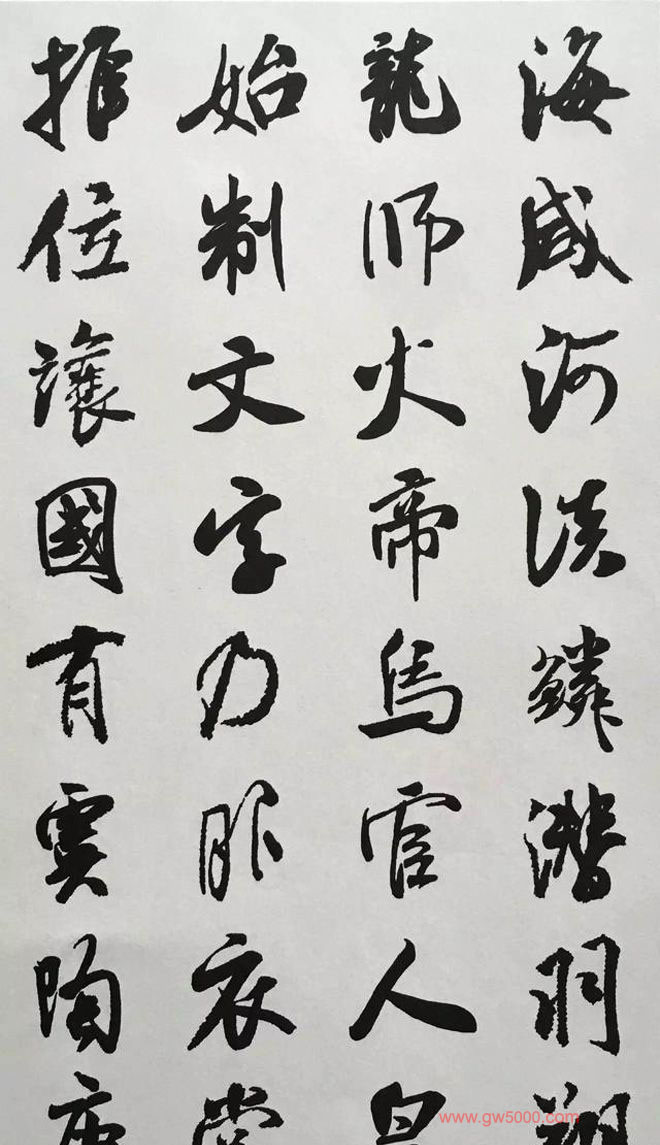 海咸河淡鱗潜羽翔
龍師火帝鳥官人皇
始制文字乃服衣裳
推位讓國有虞陶唐
www.gw5000.com